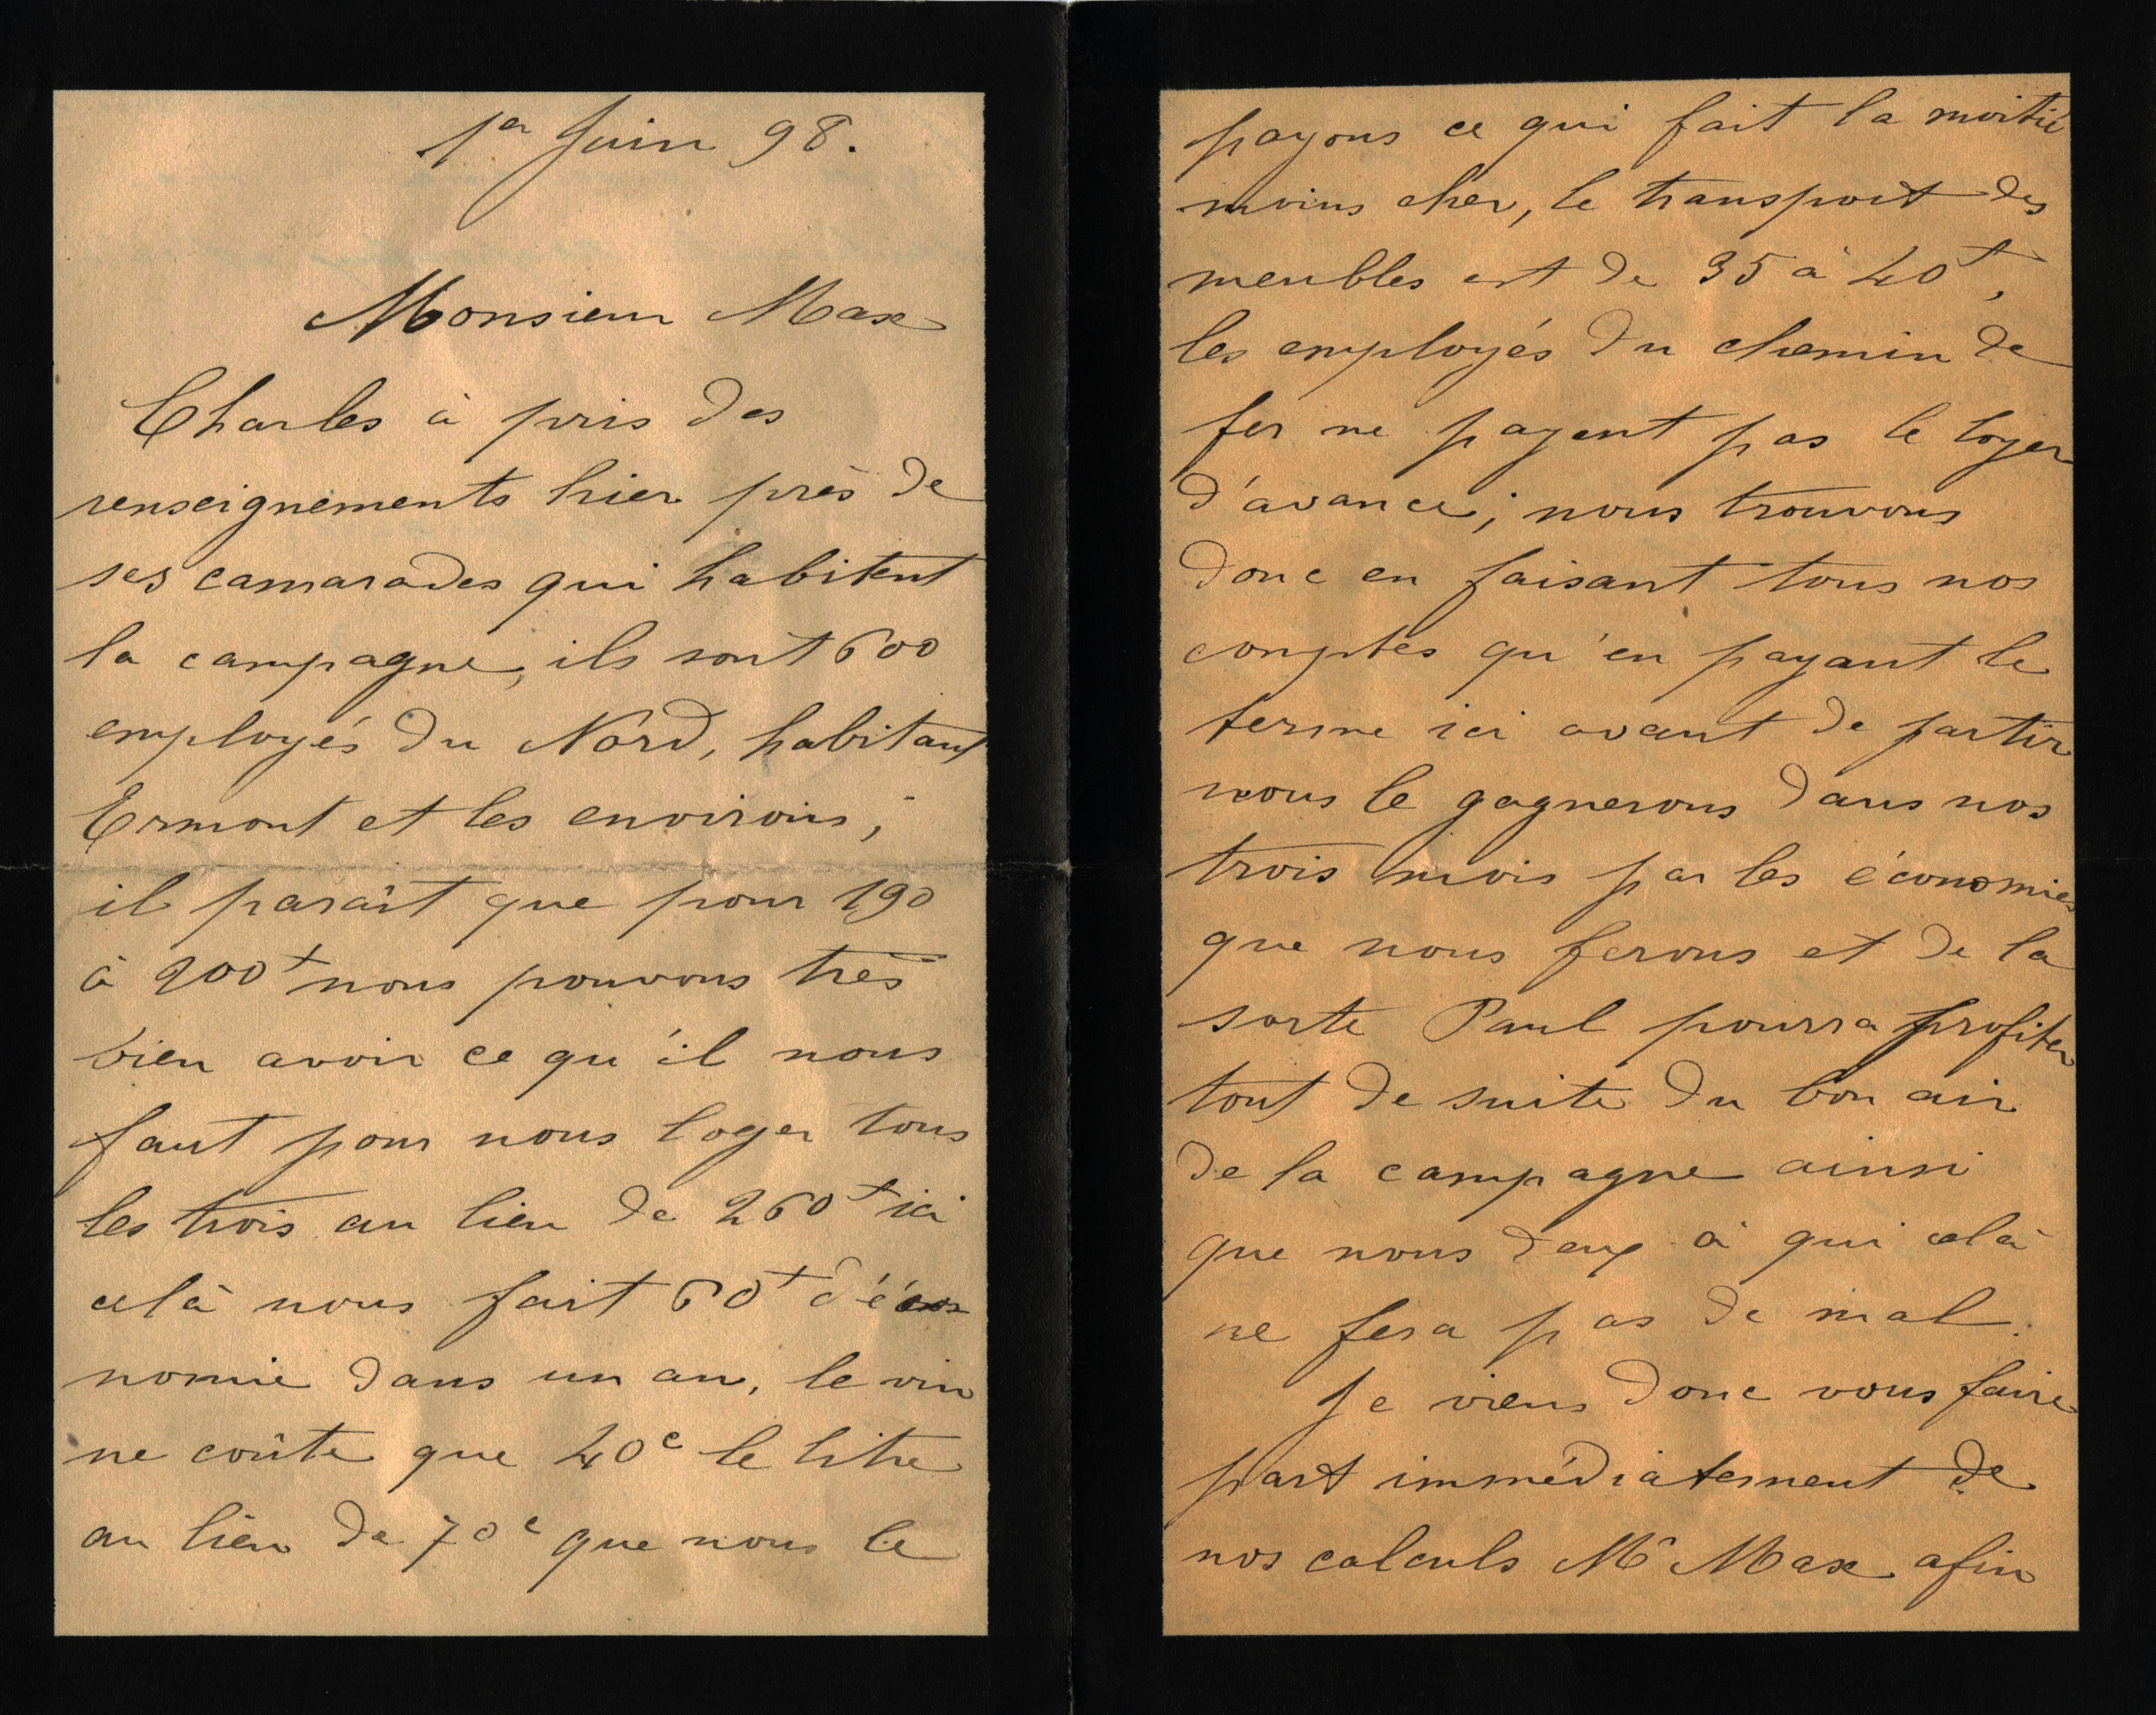 1er Juin 98.
Monsieur Max
Charles à pris des
renseignements hier près de
ses camarades qui habitent
la campagne, ils sont 600
employés du Nord, habitant
Ermont et les environs,
il parait que pour 190
à 200f nous pouvons très
bien avoir ce qu'il nous
faut pour nous loger tous
les trois au lieu de 260f ici
celà nous fait 60f d'éco
nomie dans un an, le vin
ne coûte que 40c le litre
au lieu de 70c que nous le
payons ce qui fait la moitié
moins cher, le transport des
meubles est de 35 à 40f,
les employés du chemin de
fer ne payent pas le loyer
d'avance; nous trouvons
donc en faisant tous nos
comptes qu'en payant le
terme ici avant de partir
nous le gagnerons dans nos
trois mois par les économies
que nous ferons et de la
sorte Paul pourra profiter
tout de suite du bon air
de la campagne ainsi
que nous deux à qui celà
ne fera pas de mal.
Je viens donc vous faire
part immédiatement de
nos calculs Mr Max afin